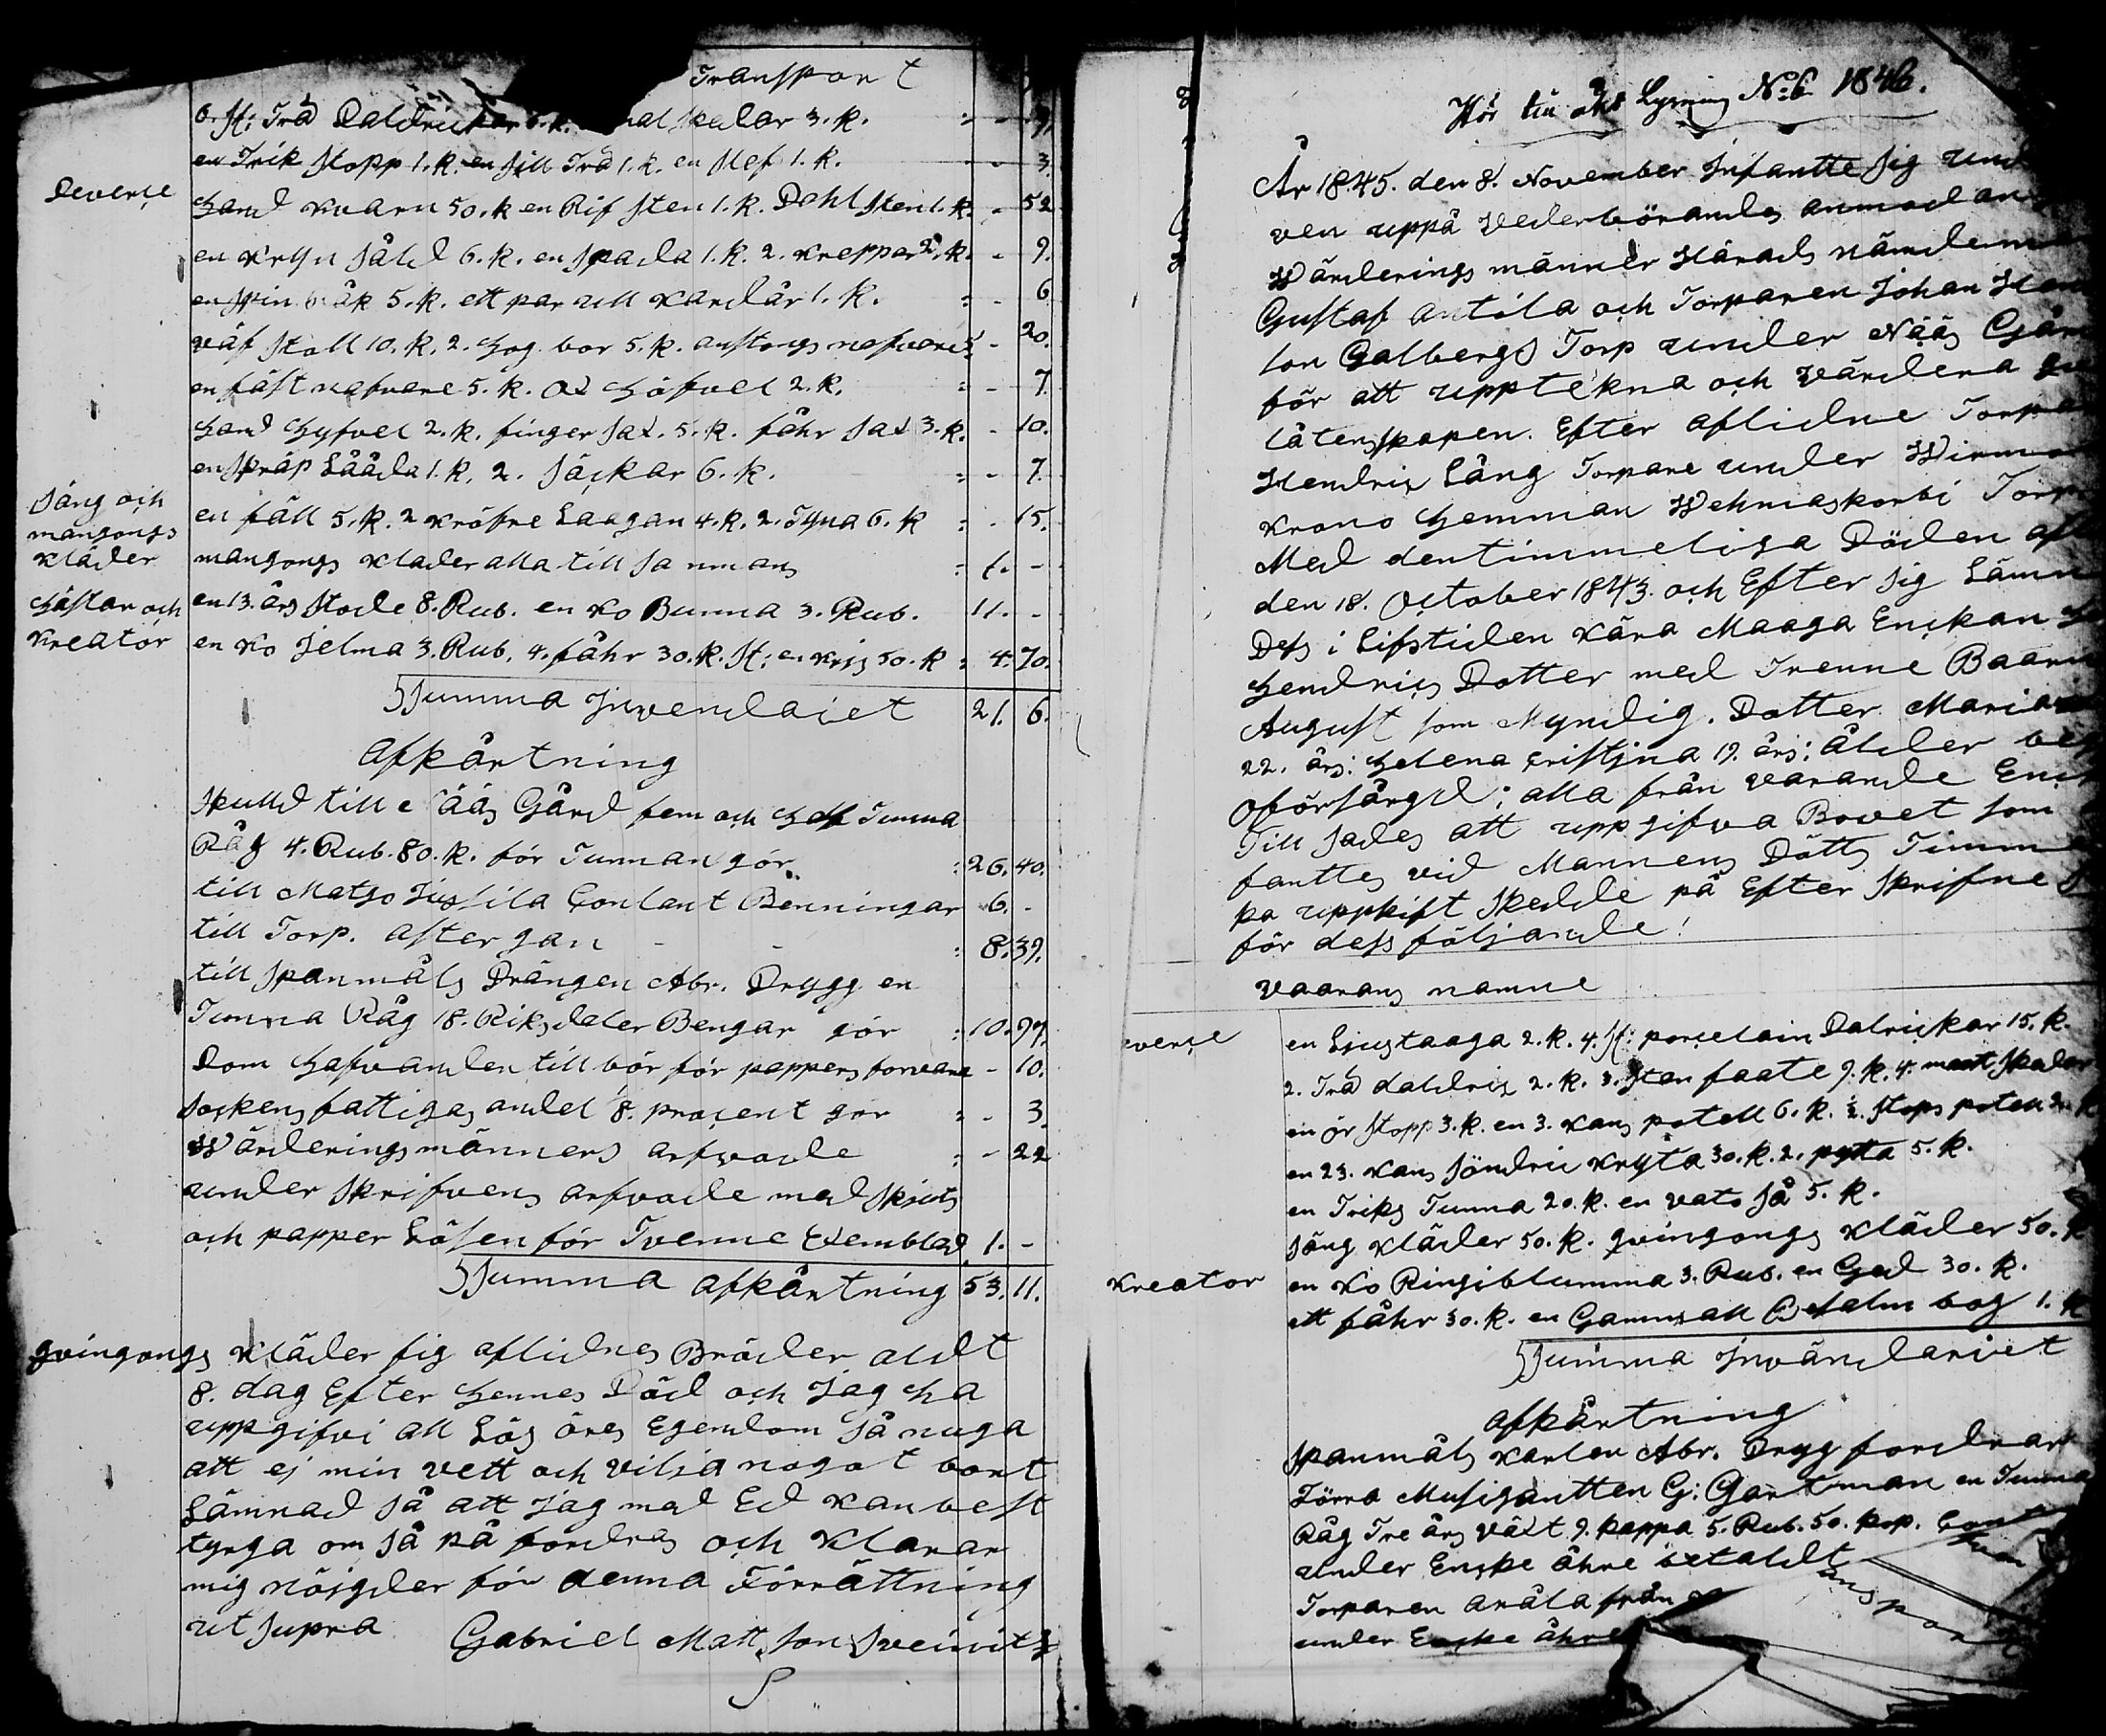 Transport
6. st: Trä Daldrickar 6.k. skedar 3.k. : - 9.
en Trik stopp 1.k. en sill Trä 1.k. en slef 1.k. - - 3.
Deverçe
hand kvarn 50.k en Rif sten 1.k. Dohl sten 1.k. - 52
en kryn såld 6.k. en spada 1.k. 2. kreppar 2.k. - 9.
en spin råk 5.k. ett par ull kardår 1.k. : - 6
väf stoll 10.k. 2. hog bor 5.k. anstongs nafvare 5. - 20.
en fäst nafvare 5.k. ox höfvel 2.k. : - 7.
hand hyfvel 2.k. finger sax. 5.k. fåhr sax 3.k. - 10.
en skräp Lååda 1.k. 2. säckar 6.k. : - 7.
Säng och
mangongs
kläder
en fäll 5.k. 2 kröfne Laagan 4.k. 2. Tyna 6.k : - 15.
mangongs klader alla till sammans : 1. -
hästar och
kreator
en 13. års stode 8. Rub. en ko Bunna 3. Rub. 11. -
en ko Jelma 3. Rub. 4. fåhr 30.k. st: en kvis 50.k : 4. 70.
Summa Invendaiet 21. 6.
Afkårtning
skuld till Nääs Gård fem och half Tunna
Råg 4. Rub. 80.k. för Tunnan gör : 26. 40.
till Matso Jussila Contant Benningar 6. -
till Torp. Astergan - - : 8. 39.
till spanmåls Drängen Abr. Drygg en
Tunna Råg 18. Riksdaler Bengar gör : 10. 97.
Dom hafvanden till bör för pappers forvara - 10.
sockens fattigas andel 8. procent gör : - 3.
Wärderings männers arfvode : - 22
under skrifvens arfvode med skiuts
och papper Lösen för Tvenne Exemblad 1. -
Summa afkårtning 53. 11.
gvingongs kläder fig aflidnes Bröder aldt
8. dag Efter hennes Död och Jag ha
uppgifvi all Lös öres Egendom så nuga
att ej min vett och vilja nogot bort
Lämnad så att Jag med Ed kan best
tyrga om så på fordras och klarar
mig nöjgder för denna Förrättning
ut supra Gabriel Matt,son Sveivits
Hör till åhr Lysning No:6 1846.
År 1845. den 8. November Infantte sig und
ven uppå Vederbörandes anmodan
Wärderings männer Härads nämdem
Gustaf Antila och Torparen Johan Hen
son Galbergs Torp under Nääs Går
för att upptekna och värdera qv
låtenskapen. Efter aflidne Torpa
Hendrix Lång Torpare under Wirmo
krono hemman Wehmaskorbi Torp
Med den timmeliga Döden afl
den 18. October 1843. och Efter sig Lämn
Dess i Lifstiden kära Maaga Enckan
hendrics Dotter med Trenne Baarn
August som Myndig. Dotter Maria
22. års: helena cristjna 19. års: ålder
oförsårgd; alla från varande
Till sades att uppgifva Bovet som
fanttes vid Mannens Dötts Timm
ka uppkift skedde på Efter skrifne
för dess följande!
vaarans namne
everçe
en Ljustaaga 2.k. 4. st: porcelain Dalrickar 15.k.
2. Trä daldrix 2.k. 3. sten faate 9.k. 4. matt skedar
en ör stopp 3.k. en 3. kans potell 6.k. ½. stops potell 2.k
en 23. kans söndrie kryta 30.k. 2. pytta 5.k.
en Triks Tunna 20.k. en vato så 5.k.
säng kläder 50.k. gvingongs kläder 50.k
kreator
en ko Ringiblumma 3. Rub. en Ged 30.k.
ett fåhr 30.k. en Gammall Psalm bog 1.k
Summa Invändariet
afkårtning
spanmåls karlen Abr. Dryg fordrar
Förra Musigantten G: Gartman en Tunna
Råg Tre års växt 9. kappa 5. Rub. 50. kop.
under Enske åhre betaldt
Torparen Aräla från
under Enske åhre